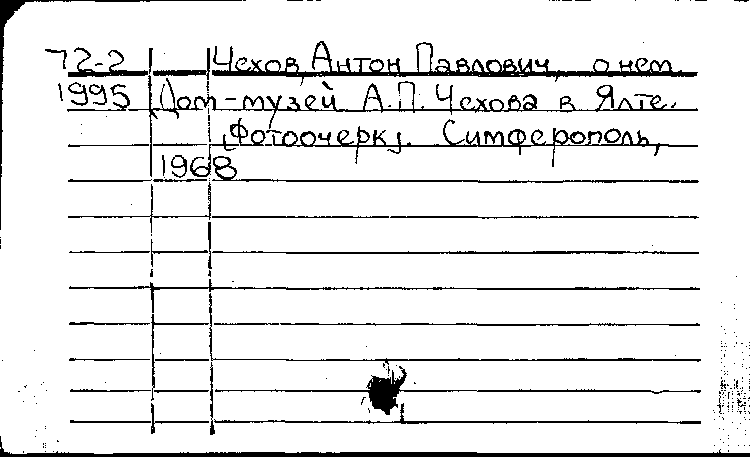 72-2 Чехов, Антон Павлович, о нем.
1995 Дом-музей А.П. Чехова в Ялте.
[Фотоочерк]. Симферополь,
1968